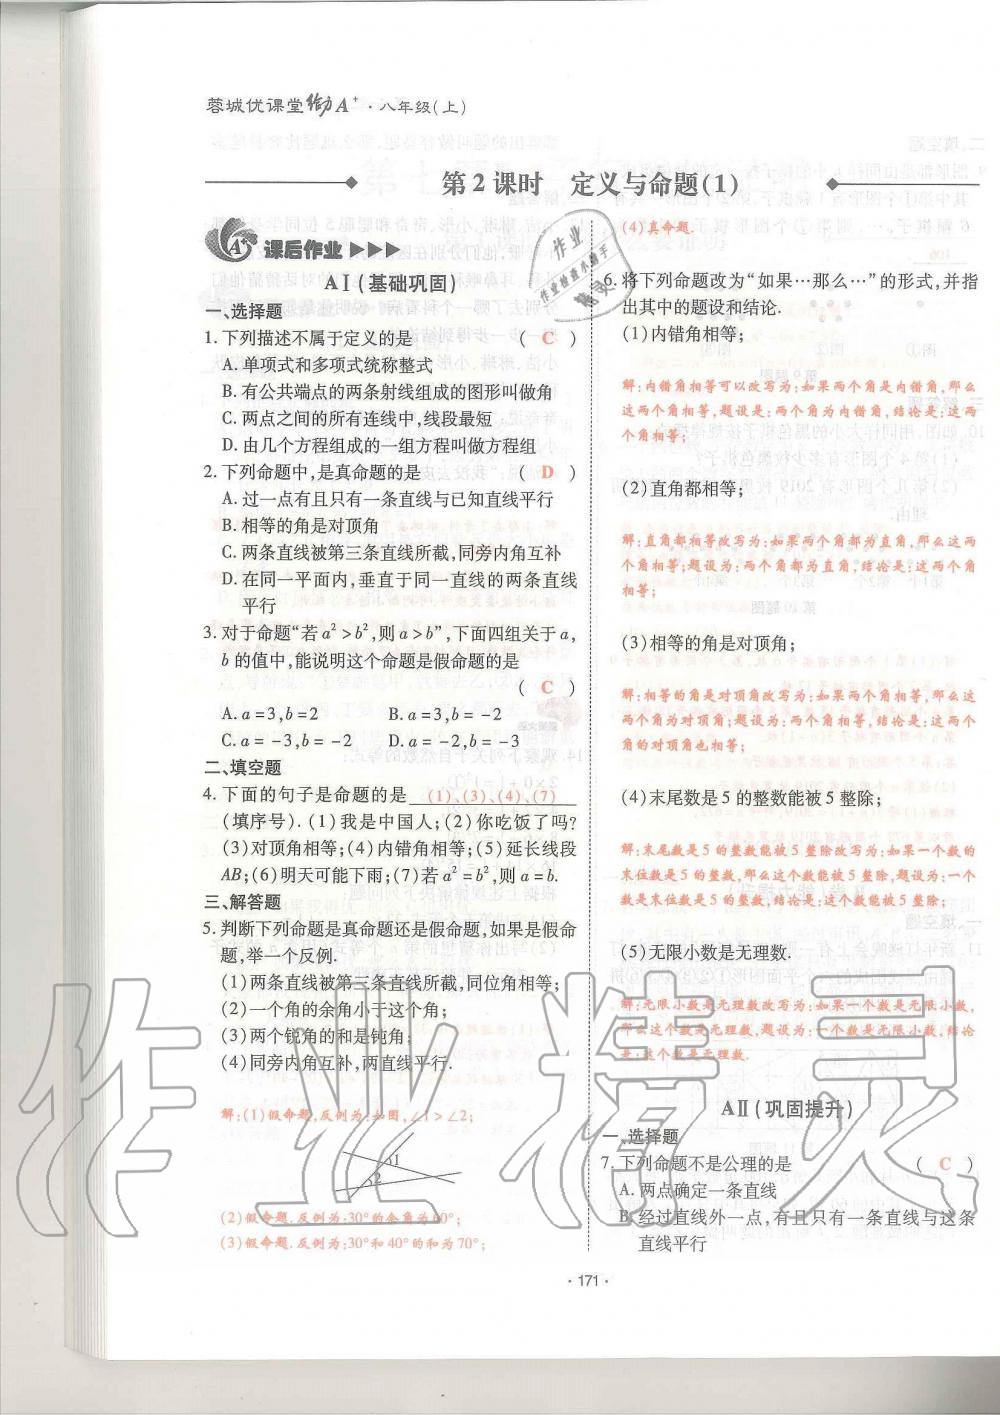 蓉城优课堂 A⁺·八年级(上)
第2课时 定义与命题(1)
A⁺ 课后作业
AⅠ(基础巩固)
一、选择题
1. 下列描述不属于定义的是 ( C )
A. 单项式和多项式统称整式
B. 有公共端点的两条射线组成的图形叫做角
C. 两点之间的所有连线中,线段最短
D. 由几个方程组成的一组方程叫做方程组
2. 下列命题中,是真命题的是 ( D )
A. 过一点有且只有一条直线与已知直线平行
B. 相等的角是对顶角
C. 两条直线被第三条直线所截,同旁内角互补
D. 在同一平面内,垂直于同一直线的两条直线
平行
3. 对于命题“若a²>b²,则a>b”,下面四组关于a,
b的值中,能说明这个命题是假命题的是
( C )
A. a=3,b=2 B. a=3,b=-2
C. a=-3,b=-2 D. a=-2,b=-3
二、填空题
4. 下面的句子是命题的是 (1)、(3)、(4)、(7)
(填序号). (1)我是中国人;(2)你吃饭了吗?
(3)对顶角相等;(4)内错角相等;(5)延长线段
AB;(6)明天可能下雨;(7)若a²=b²,则a=b.
三、解答题
5. 判断下列命题是真命题还是假命题,如果是假命
题,举一个反例.
(1)两条直线被第三条直线所截,同位角相等;
(2)一个角的余角小于这个角;
(3)两个锐角的和是钝角;
(4)同旁内角互补,两直线平行.
解:(1)假命题,反例为:如图,∠1>∠2;
1
2
(2)假命题.反例为:30°的余角为60°;
(3)假命题.反例为:30°和40°的和为70°;
(4)真命题.
6. 将下列命题改为“如果…那么…”的形式,并指
出其中的题设和结论.
(1)内错角相等;
解:内错角相等可以改写为:如果两个角是内错角,那么
这两个角相等,题设是:两个角为内错角,结论是:这两
个角相等;
(2)直角都相等;
解:直角都相等改写为:如果两个角都为直角,那么这两
个角相等;题设为:两个角都为直角,结论是:这两个角
相等;
(3)相等的角是对顶角;
解:相等的角是对顶角改写为:如果两个角相等,那么这
两个角为对顶角;题设为:两个角相等,结论是:这两个
角的对顶角也相等;
(4)末尾数是5的整数能被5整除;
解:末尾数是5的整数能被5整除改写为:如果一个数的
末位数是5的整数,那么这个数能被5整除,题设为:一个
数是末位数是5的整数,结论是:这个数能被5整除;
(5)无限小数是无理数.
解:无限小数是无理数改写为:如果一个数是无限小数,
那么这个数是无理数,题设为:一个数是无限小数,结论
是:这个数是无理数.
AⅡ(巩固提升)
一、选择题
7. 下列命题不是公理的是 ( C )
A. 两点确定一条直线
B. 经过直线外一点,有且只有一条直线与这条
直线平行
·171·
作业精灵
作业
作业检查小助手
精灵